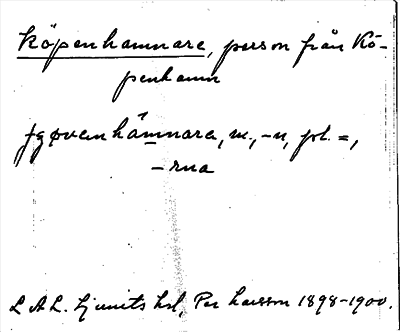 Köpenhamnare, person från Kö-
penhamn
fgøvenhámnara, m., -n, pl. =,
-rna
L A L. Ljunits hd, Per Larsson 1898-1900.